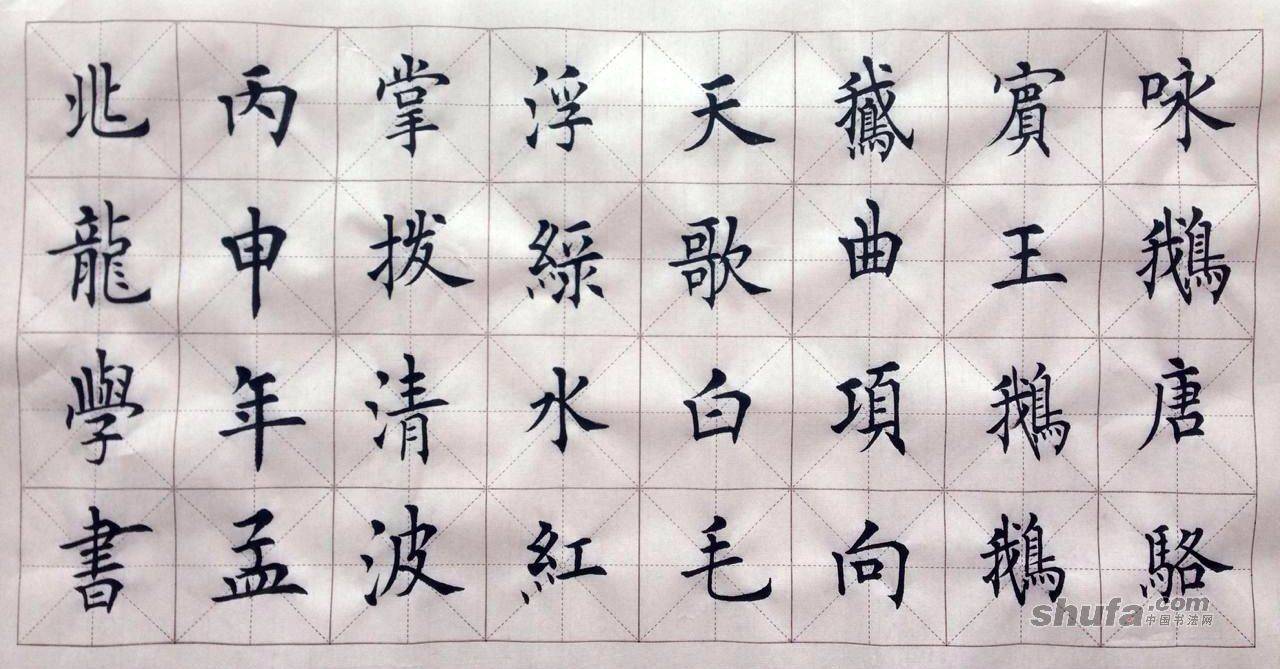 咏鵝唐駱
賓王鵝鵝
䳘曲項向
天歌白毛
浮綠水紅
掌拨清波
丙申年孟
兆龍學書
shufa.com
中国书法网